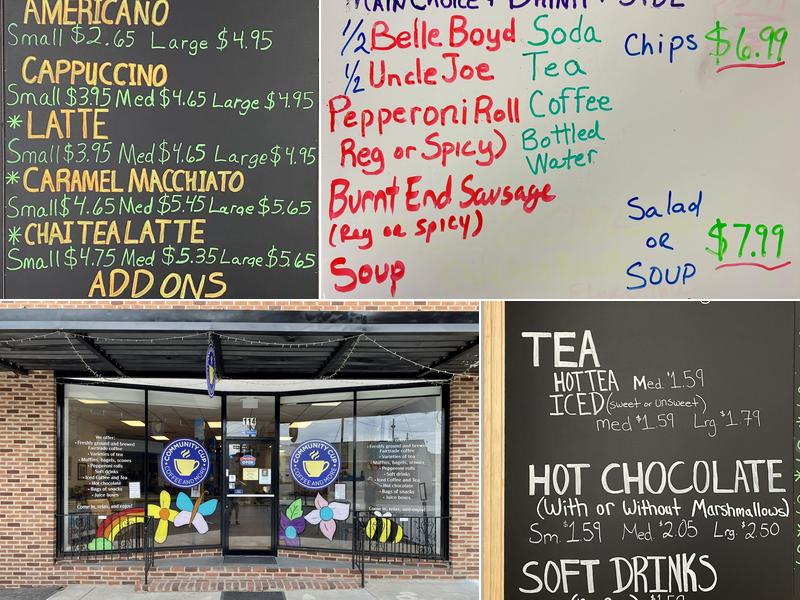 AMERICANO
Small $2.65 Large $4.95
CAPPUCCINO
Small $3.95 Med $4.65 Large $4.95
* LATTE
Small $3.95 Med $4.65 Large $4.95
* CARAMEL MACCHIATO
Small $4.65 Med $5.45 Large $5.65
* CHAI TEA LATTE
Small $4.75 Med $5.35 Large $5.65
ADD ONS
MAIN CHOICE + DRINK + SIDE
1/2 Belle Boyd
1/2 Uncle Joe
Pepperoni Roll
Reg or Spicy)
Burnt End Sausage
(Reg or Spicy)
Soup
Soda
Tea
Coffee
Bottled
Water
Chips $6.99
Salad
OR
SOUP
$7.99
114
OPEN
COMMUNITY CUP
COFFEE AND MORE
We offer:
• Freshly ground and brewed
Fairtrade coffee
• Varieties of tea
• Muffins, bagels, scones
• Pepperoni rolls
• Soft drinks
• Iced Coffee and Tea
• Hot chocolate
• Bags of snacks
• Juice boxes
Come in, relax, and enjoy!
COMMUNITY CUP
COFFEE AND MORE
• Freshly ground and brewed
Fairtrade coffee
• Varieties of tea
• Muffins, bagels, scones
• Pepperoni rolls
• Soft drinks
• Iced Coffee and Tea
• Hot chocolate
• Bags of snacks
• Juice boxes
Come in, relax, and enjoy!
TEA
HOT TEA Med. $1.59
ICED (sweet or unsweet)
med $1.59 Lrg $1.79
HOT CHOCOLATE
(With or Without Marshmallows)
Sm. $1.59 Med. $2.05 Lrg. $2.50
SOFT DRINKS